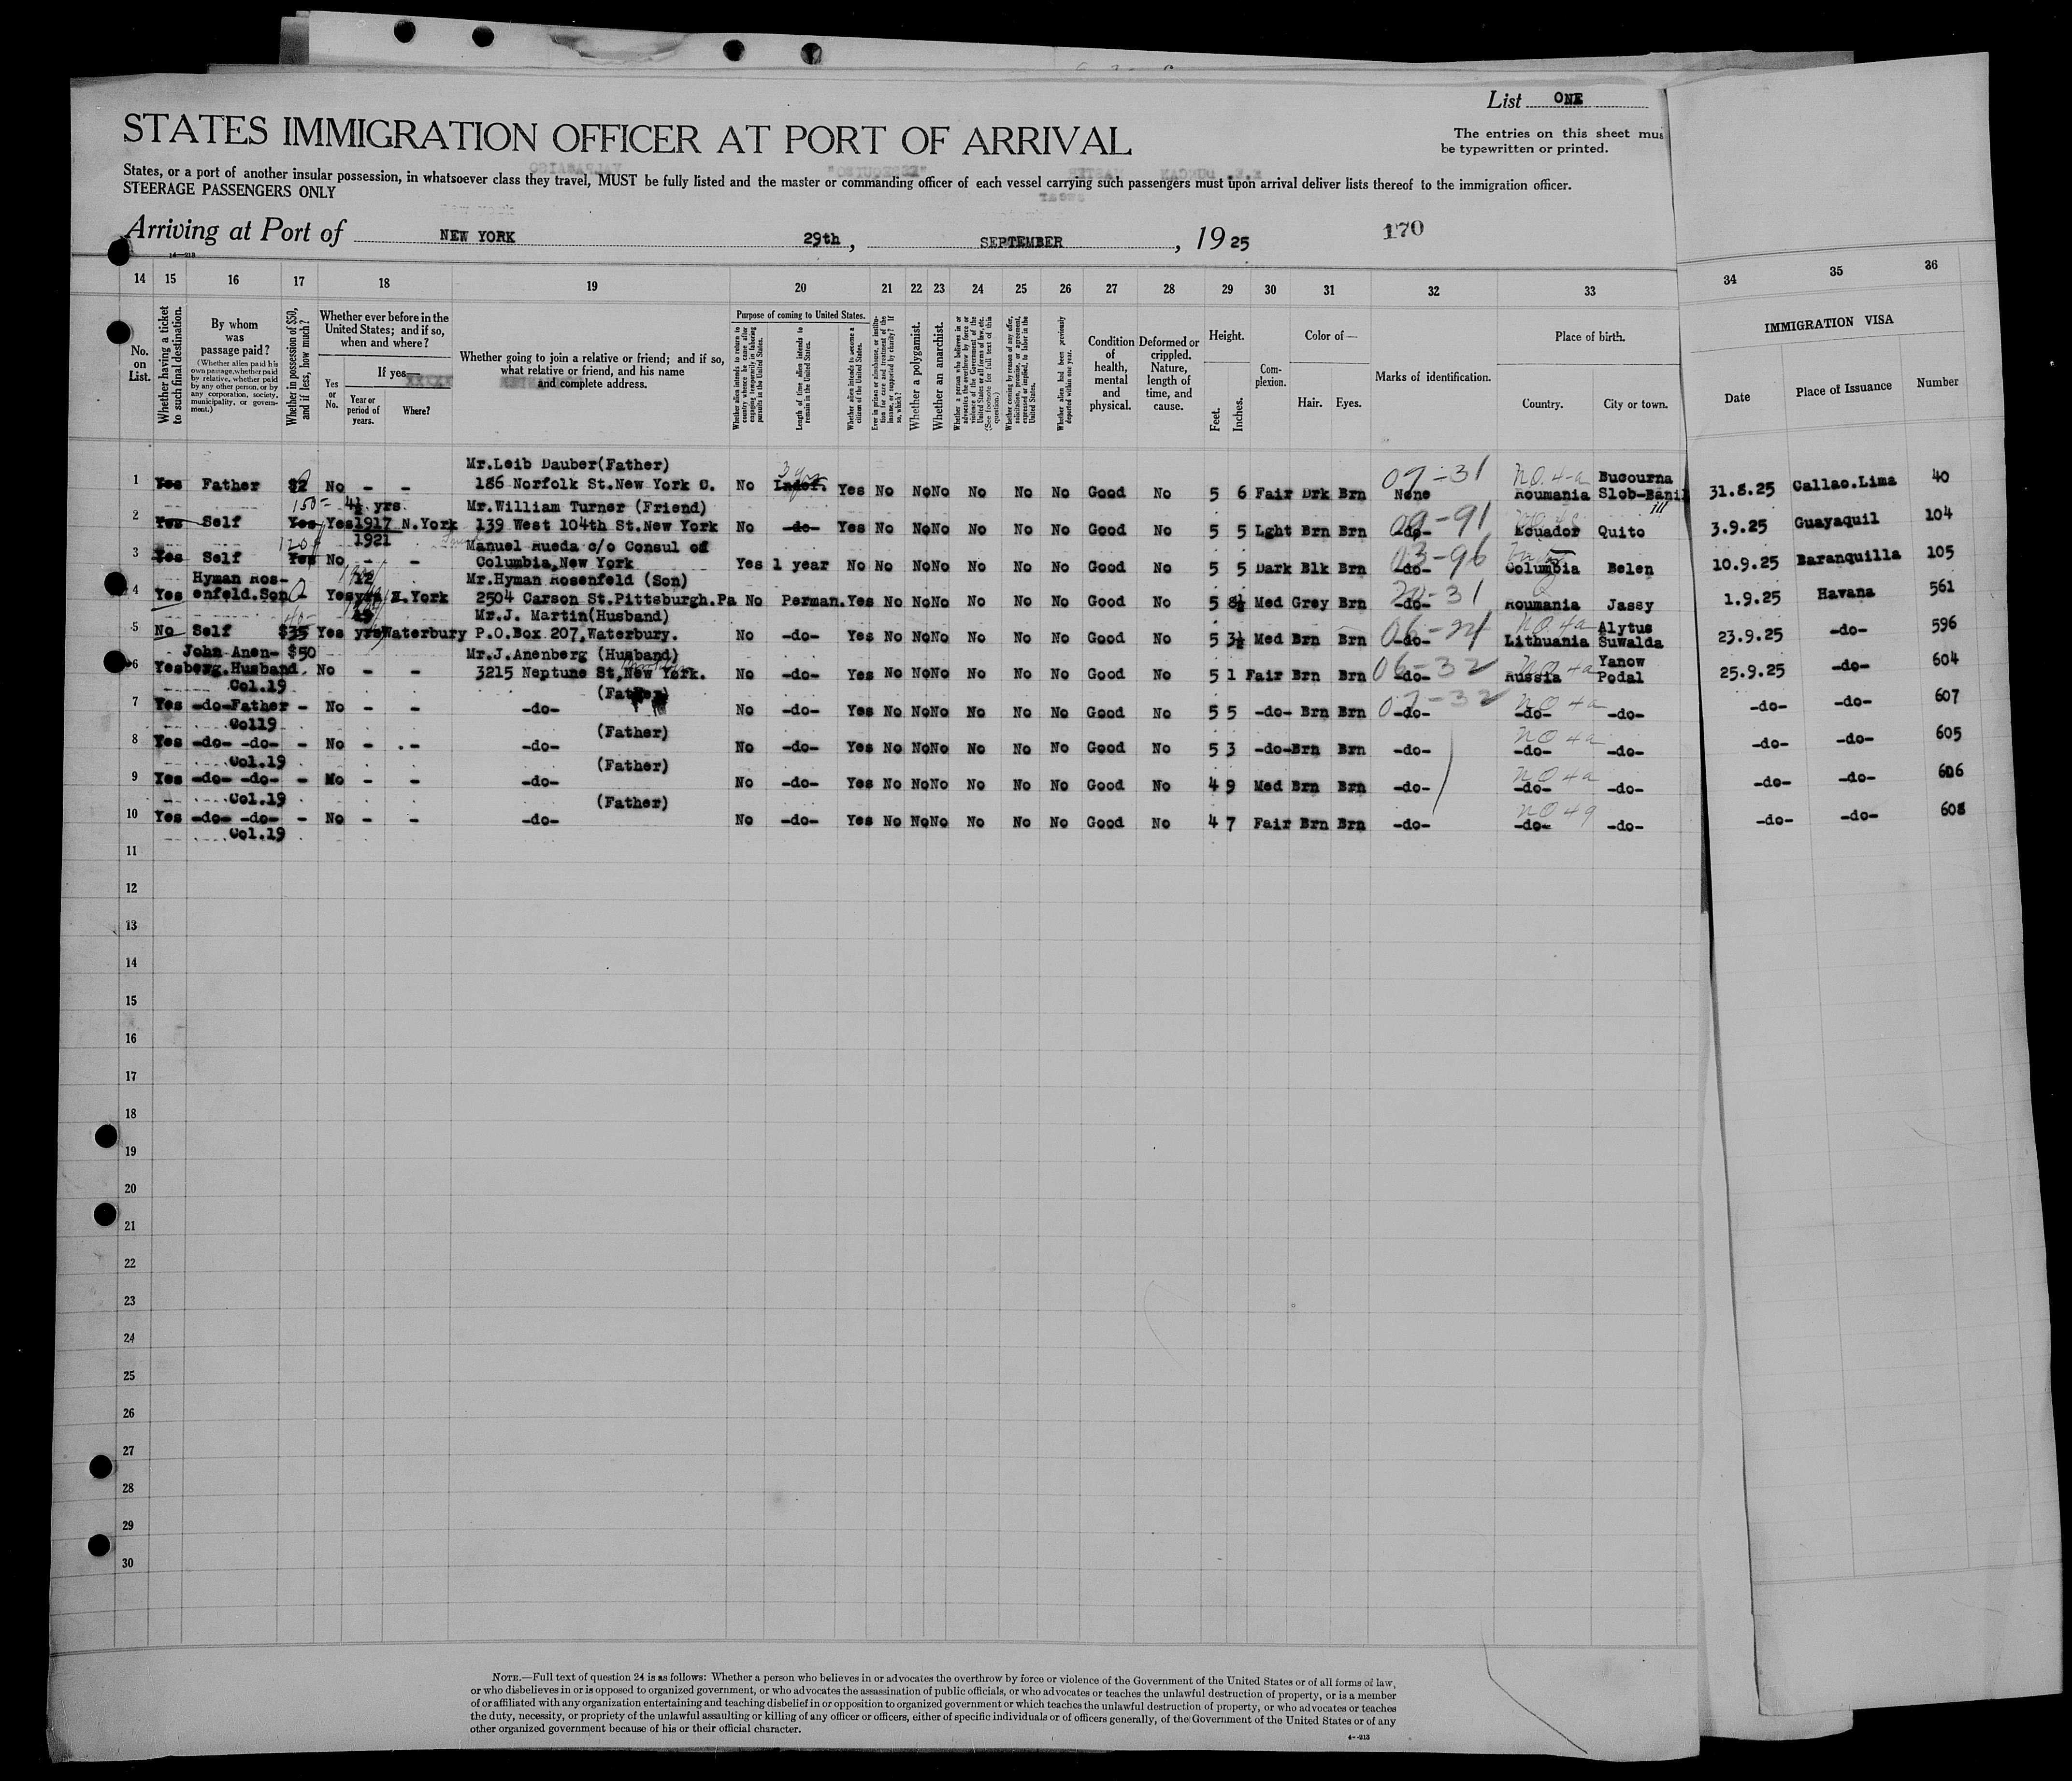 List ONE
STATES IMMIGRATION OFFICER AT PORT OF ARRIVAL
The entries on this sheet mus
be typewritten or printed.
States, or a port of another insular possession, in whatsoever class they travel, MUST be fully listed and the master or commanding officer of each vessel carrying such passengers must upon arrival deliver lists thereof to the immigration officer.
STEERAGE PASSENGERS ONLY
Arriving at Port of NEW YORK 29th, SEPTEMBER, 1925 170
14—213
14 15 16 17 18 19 20 21 22 23 24 25 26 27 28 29 30 31 32 33 34 35 36
No. on List.
Whether having a ticket to such final destination.
By whom was passage paid?
(Whether alien paid his own passage, whether paid by relative, whether paid by any other person, or by any corporation, society, municipality, or government.)
Whether in possession of $50, and if less, how much?
Whether ever before in the United States; and if so, when and where?
If yes—
Yes or No.
Year or period of years.
Where?
Whether going to join a relative or friend; and if so, what relative or friend, and his name and complete address.
Purpose of coming to United States.
Whether alien intends to return to country whence he came after engaging temporarily in laboring pursuits in the United States.
Length of time alien intends to remain in the United States.
Whether alien intends to become a citizen of the United States.
Ever in prison or almshouse, or institution for care and treatment of the insane, or supported by charity? If so, which?
Whether a polygamist.
Whether an anarchist.
Whether a person who believes in or advocates the overthrow by force or violence of the Government of the United States or all forms of law, etc. (See footnote for full text of this question.)
Whether coming by reason of any offer, solicitation, promise, or agreement, expressed or implied, to labor in the United States.
Whether alien had been previously deported within one year.
Condition of health, mental and physical.
Deformed or crippled. Nature, length of time, and cause.
Height.
Feet. Inches.
Complexion.
Color of—
Hair. Eyes.
Marks of identification.
Place of birth.
Country. City or town.
IMMIGRATION VISA
Date Place of Issuance Number
Mr.Leib Dauber(Father) 3 yrs 07-31 No. 4-a Bucourna
1 Yes Father $2 No - - 186 Norfolk St.New York C. No Indef. Yes No No No No No No Good No 5 6 Fair Drk Brn None Roumania Slob-Banil 31.8.25 Callao.Lima 40
150- 4½ yrs. Mr.William Turner (Friend) 09-91
2 Yes Self Yes Yes 1917 N.York 139 West 104th St.New York No -do- Yes No No No No No No Good No 5 5 Lght Brn Brn -do- Ecuador Quito 3.9.25 Guayaquil 104
120 1921 Manuel Rueda c/o Consul of 03-96
3 Yes Self Yes No - - Columbia,New York Yes 1 year No No No No No No No Good No 5 5 Dark Blk Brn -do- Columbia Belen 10.9.25 Baranquilla 105
Hyman Ros- Mr.Hyman Rosenfeld (Son) 20-31
4 Yes enfeld.Son Yes N.York 2504 Carson St.Pittsburgh.Pa No Perman. Yes No No No No No No Good No 5 8½ Med Grey Brn -do- Roumania Jassy 1.9.25 Havana 561
Mr.J. Martin(Husband) No 4a Alytus
5 No Self $35 Yes yrs Waterbury P.O.Box 207,Waterbury. No -do- Yes No No No No No No Good No 5 3½ Med Brn Brn -do- Lithuania Suwalda 23.9.25 -do- 596
John Anen- $50 Mr.J.Anenberg (Husband) 06-32 No 4a Yanow
6 Yes berg.Husband. No - - 3215 Neptune St,New York. No -do- Yes No No No No No No Good No 5 1 Fair Brn Brn -do- Russia Podal 25.9.25 -do- 604
Col.19 (Father) 07-32 No 4a
7 Yes -do-Father - No - - -do- No -do- Yes No No No No No No Good No 5 5 -do- Brn Brn -do- -do- -do- -do- -do- 607
Col19 (Father) No 4a
8 Yes -do- -do- - No - - -do- No -do- Yes No No No No No No Good No 5 3 -do- Brn Brn -do- -do- -do- -do- -do- 605
Col.19 (Father) No 4a
9 Yes -do- -do- - No - - -do- No -do- Yes No No No No No No Good No 4 9 Med Brn Brn -do- -do- -do- -do- -do- 606
Col.19 (Father) No 4a
10 Yes -do- -do- - No - - -do- No -do- Yes No No No No No No Good No 4 7 Fair Brn Brn -do- -do- -do- -do- -do- 608
Col.19
11
12
13
14
15
16
17
18
19
20
21
22
23
24
25
26
27
28
29
30
NOTE.—Full text of question 24 is as follows: Whether a person who believes in or advocates the overthrow by force or violence of the Government of the United States or of all forms of law,
or who disbelieves in or is opposed to organized government, or who advocates the assassination of public officials, or who advocates or teaches the unlawful destruction of property, or is a member
of or affiliated with any organization entertaining and teaching disbelief in or opposition to organized government or which teaches the unlawful destruction of property, or who advocates or teaches
the duty, necessity, or propriety of the unlawful assaulting or killing of any officer or officers, either of specific individuals or of officers generally, of the Government of the United States or of any
other organized government because of his or their official character.
4—213